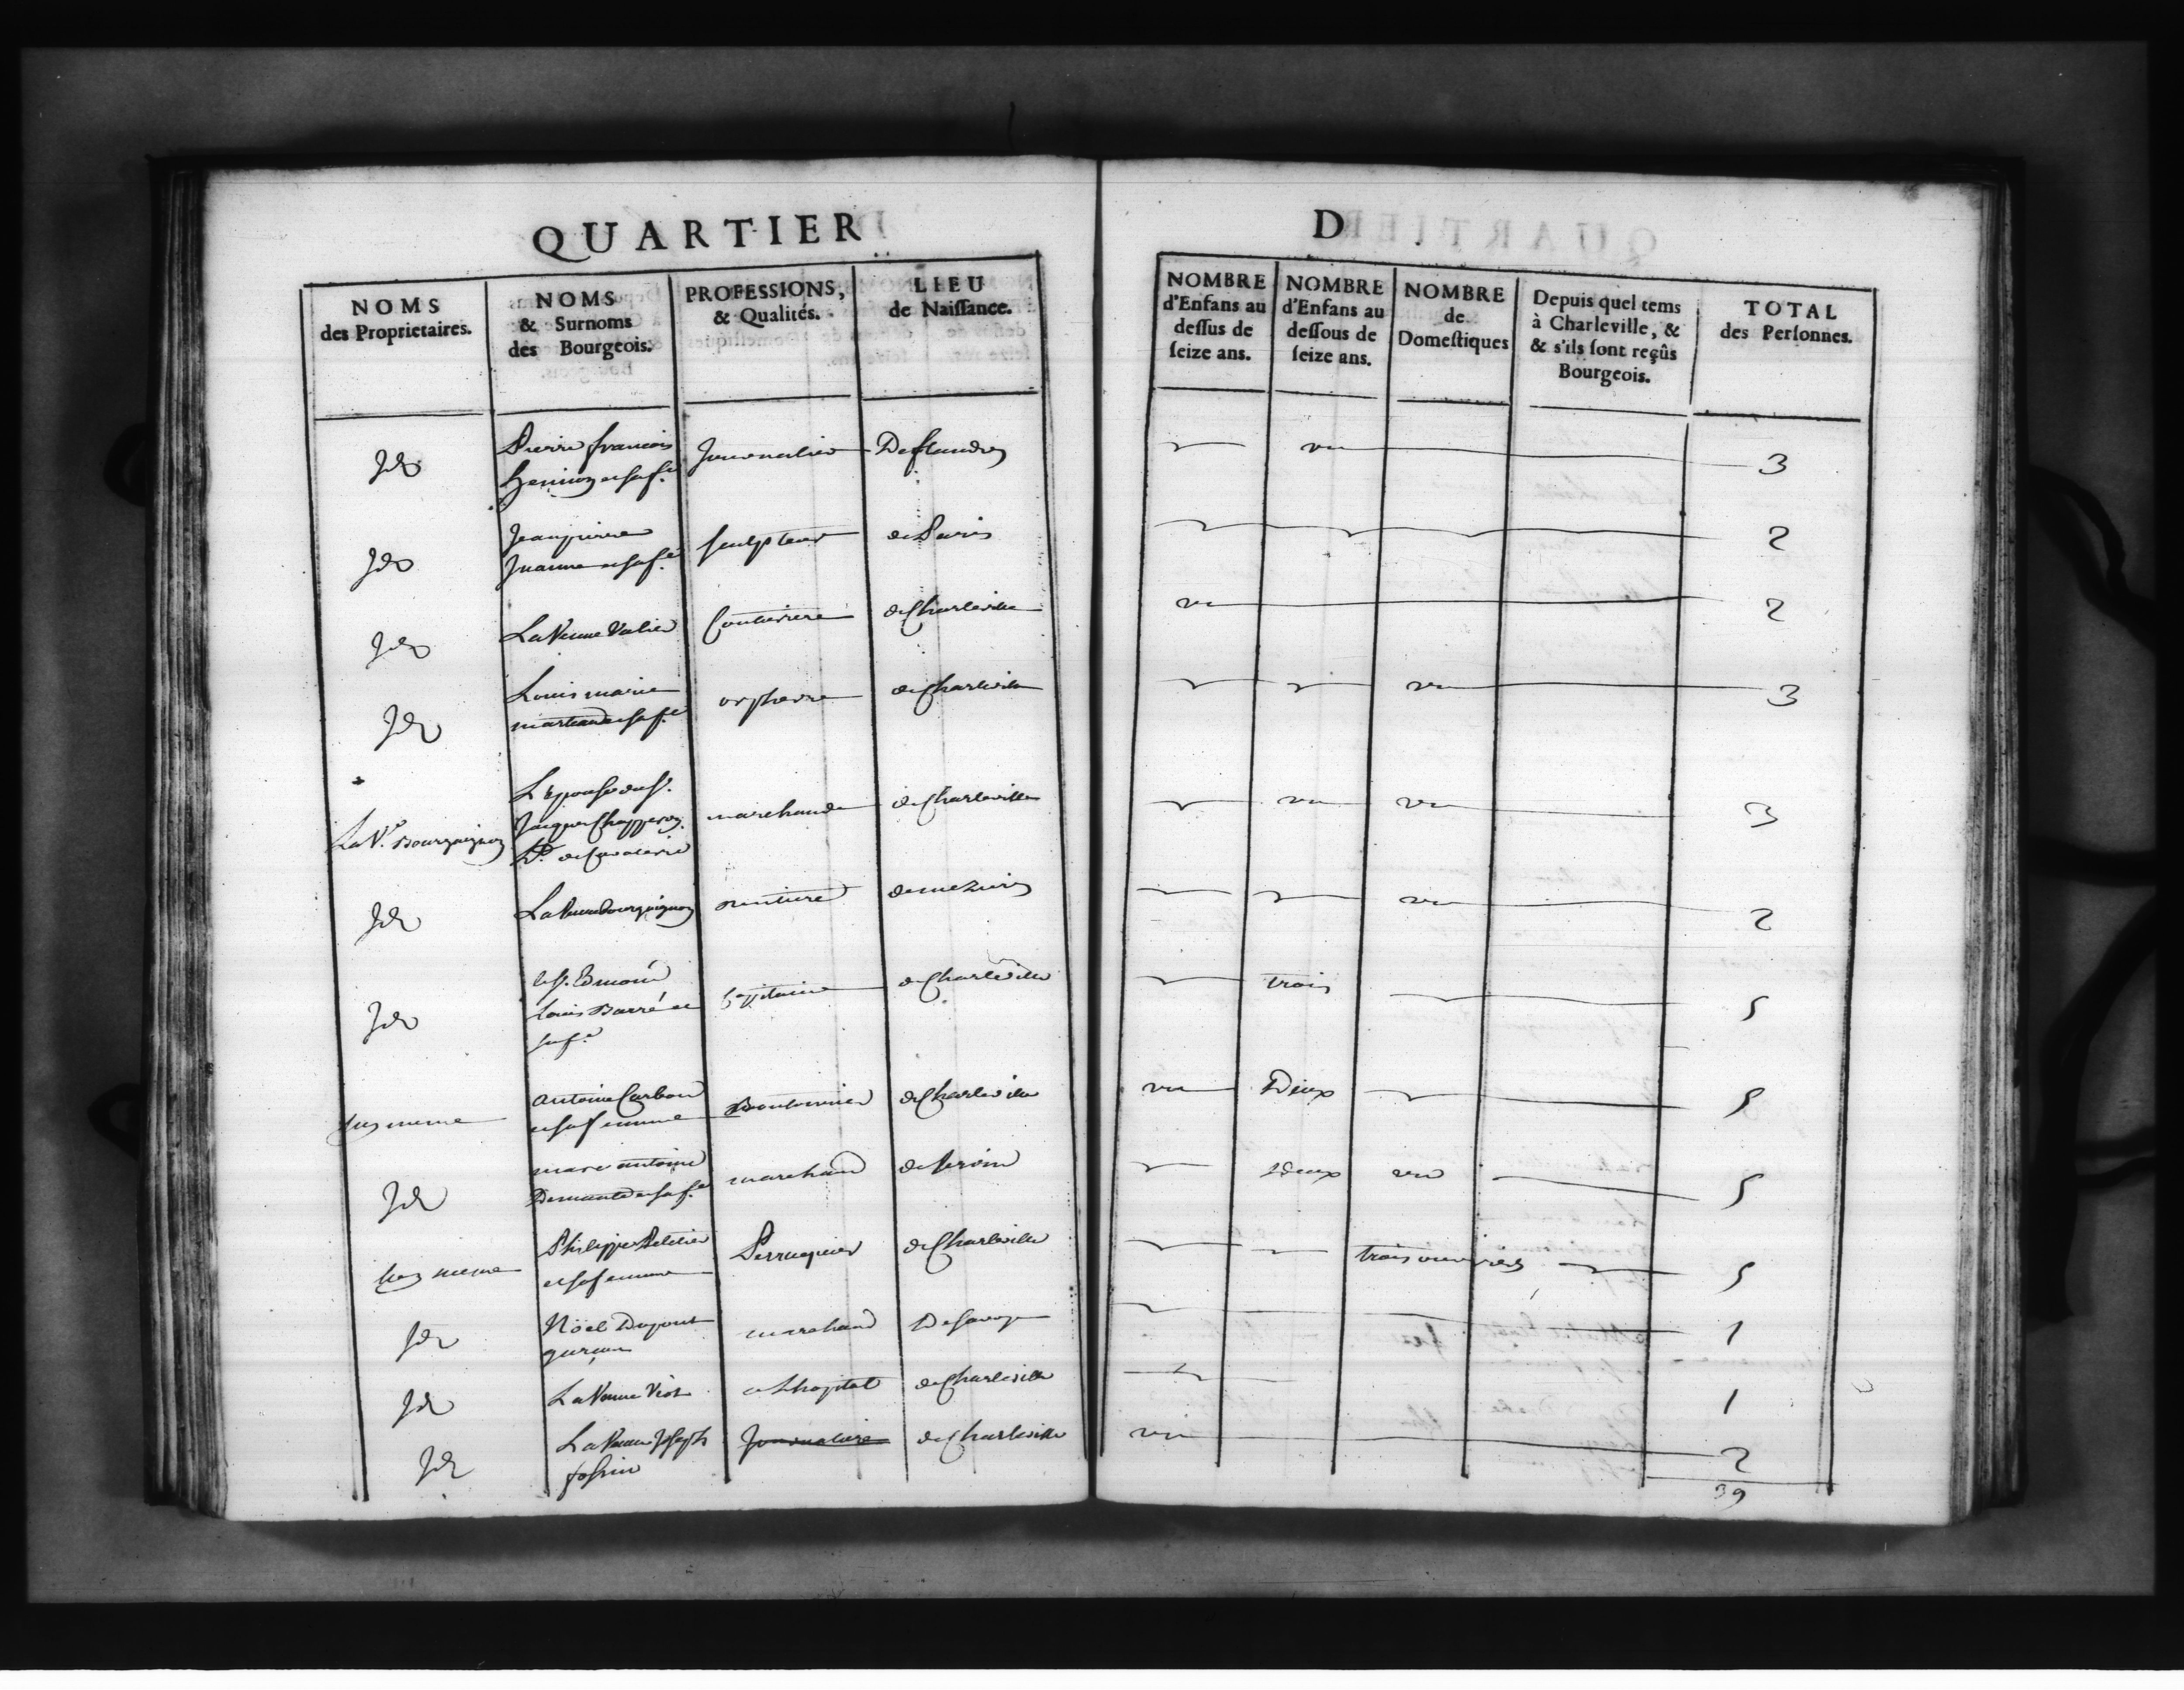 QUARTIER D
NOMS des Proprietaires.
NOMS & Surnoms des Bourgeois.
PROFESSIONS, & Qualités.
LIEU de Naiſſance.
NOMBRE d'Enfans au deſſus de ſeize ans.
NOMBRE d'Enfans au deſſous de ſeize ans.
NOMBRE de Domeſtiques
Depuis quel tems à Charleville, & & s'ils ſont reçûs Bourgeois.
TOTAL des Perſonnes.
Jd Pierre francois journalier De flandres un 3
et sa fe
Jd Jean pierre sculpteur de Paris 2
et sa fe
Jd La Veuve Couturiere de Charleville un 2
Jd Louis marie orphevre de Charleville un 3
et sa fe
L'Epouse du Sr.
La Ve. Bourguignon Jacques marchande de Charleville un un 3
de Cavalerie
Jd La Veuve Bourguignon rentiere de mezieres un 2
le Sr. Edmond
Jd Louis Barré et Capitaine de Charleville trois 5
sa fe
luy meme Antoine Carbon Boutonnier de Charleville un Deux 5
et sa femme
Jd marc antoine marchand deux un 5
et sa fe
luy meme Philippe Peletier Perruquier de Charleville trois ouvriers 5
et sa femme
Jd Nöel Dupont marchand De Savoye 1
garçon
Jd La Veuve a L'hopital de Charleville 1
Jd La Veuve Joseph journaliere de Charleville un 2
39